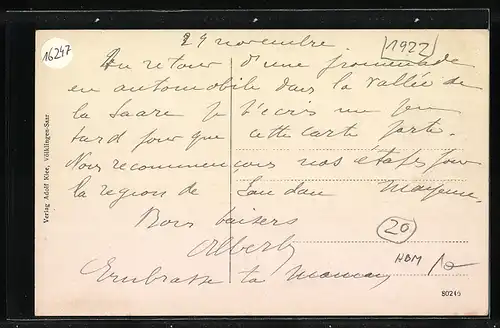 16247
29 novembre
1922
Au retour d'une promenade
en automobile dans la vallée de
la Saare je t'écris un peu
tard pour que cette carte parte.
Nous recommençons nos étapes pour
la region de Landau Mayence.
Bons baisers
Albert
Embrasse ta maman
20
HBM
80246
Verlag Adolf Klee, Völklingen-Saar